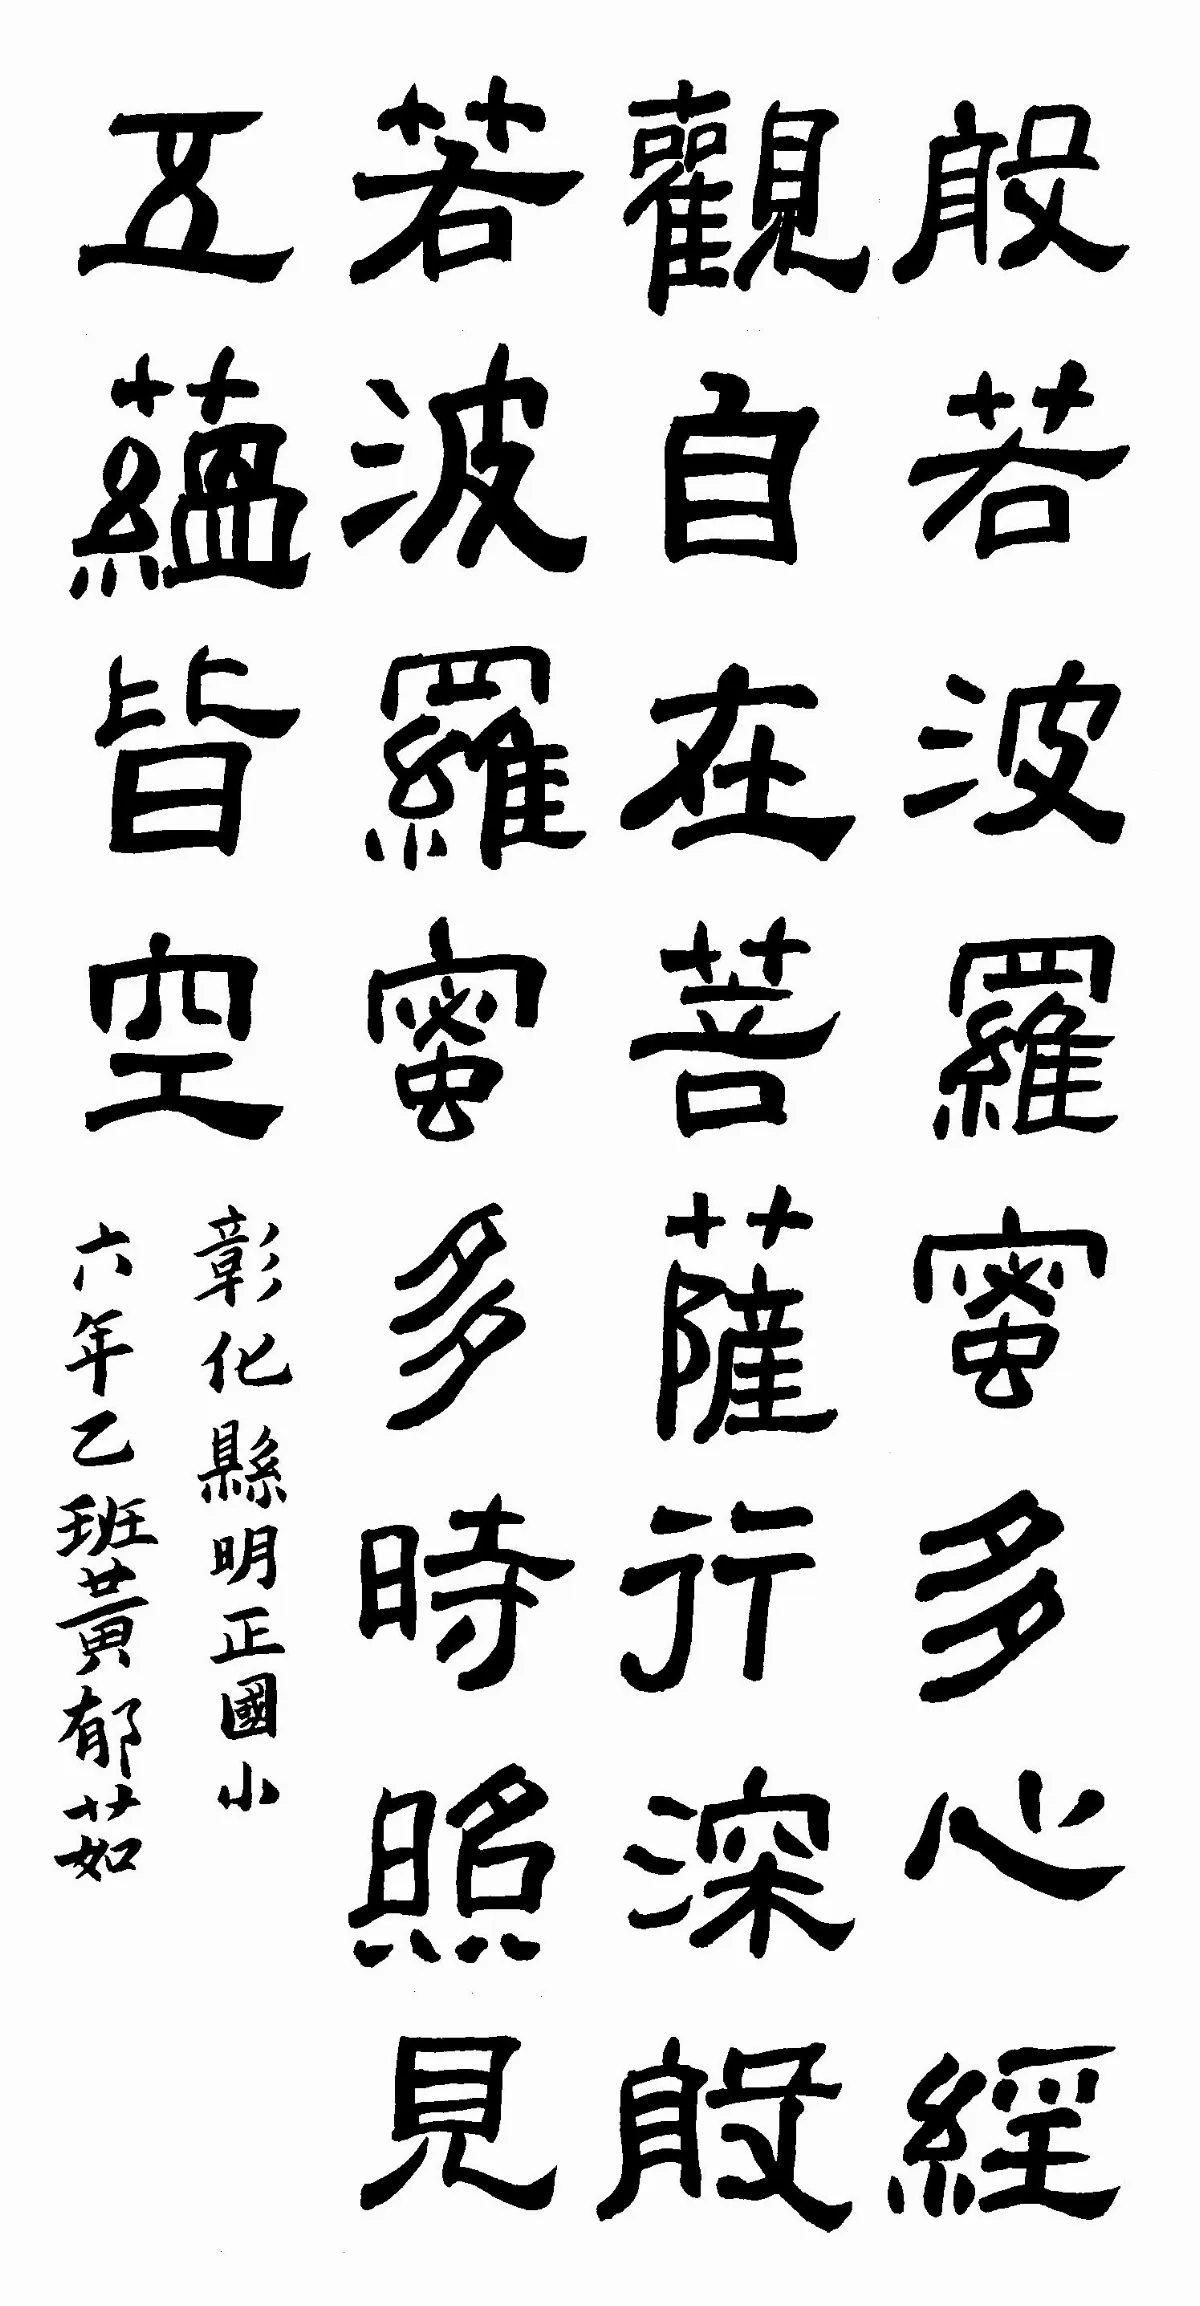 般若波羅蜜多心經
觀自在菩薩行深般
若波羅蜜多時照見
五蘊皆空
彰化縣明正國小
六年乙班黃郁茹